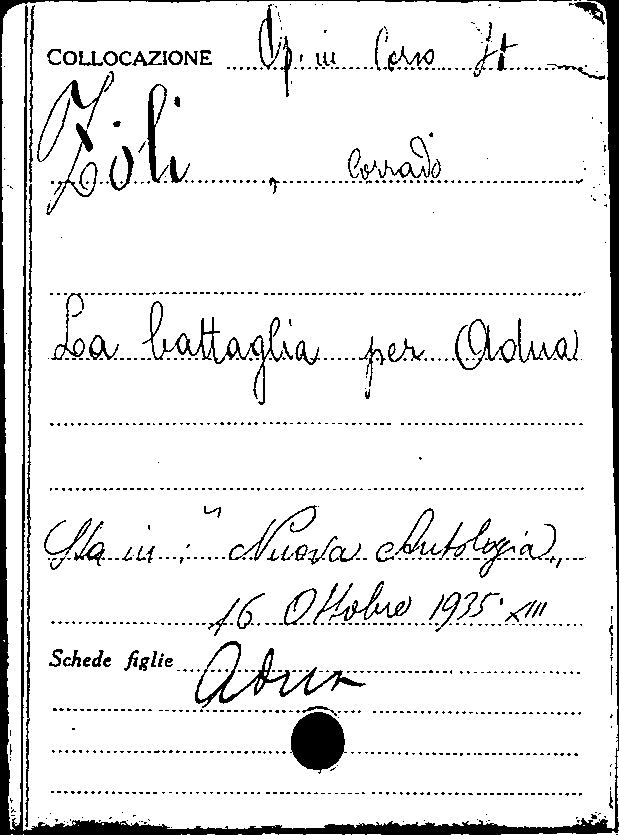 COLLOCAZIONE Op. in Corso It
Zoli, Corrado
La battaglia per Adua
Sta in: "Nuova Antologia„
16 Ottobre 1935. XIII
Schede figlie Adua